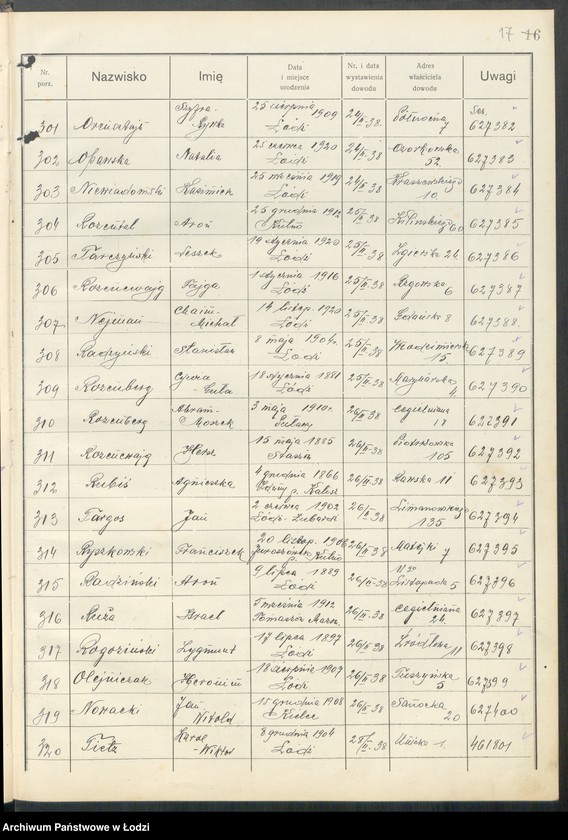 17 16
Nr. porz. Nazwisko Imię Data i miejsce urodzenia Nr. i data wystawienia dowodu Adres właściciela dowodu Uwagi
301 25 sierpnia 1909 Łódź 24/II-38 Północna 7 Ser. 627382
302 Opawska Natalia 25 czerwca 1920 Łódź 24/II-38 Ozorkowska 52 627383
303 Niewiadomski Kazimierz 25 września 1919 Łódź 24/II-38 Kraszewskiego 10 627384
304 Rozental Aron 25 grudnia 1912 Kutno 25/II-38 Kilińskiego 60 627385
305 Tarczyński Leszek 19 stycznia 1920 Łódź 25/II-38 Zgierska 24 627386
306 Rozencwajg Fajga 1 stycznia 1916 Łódź 25/II-38 Rzgowska 6 627387
307 Nejman Chaim-Michał 14 listop. 1920 Łódź 25/II-38 Gdańska 8 627388
308 Radzyński Stanisław 8 maja 1904 Łódź 25/II-38 15 627389
309 Rozenberg Gitla 18 stycznia 1881 Łódź 25/II-38 4 627390
310 Rozenberg Abram-Moszek 3 maja 1910 26/II-38 Cegielniana 18 627391
311 Rozencwajg Hersz 15 maja 1885 26/II-38 Piotrkowska 105 627392
312 Rubiś Agnieszka 4 grudnia 1866 p. Kalisz 26/II-38 Pańska 11 627393
313 Targos Jan 2 czerwca 1902 Łódź 26/II-38 Limanowskiego 135 627394
314 Ryszkowski Franciszek 20 listop. 1906 Kutno 26/II-38 Matejki 7 627395
315 Radziński Aron 9 lipca 1889 Łódź 26/II-38 11-go Listopada 5 627396
316 Ruża Izrael 5 września 1912 Tomaszów Mazow. 26/II-38 Cegielniana 24 627397
317 Rogoziński Zygmunt 17 lipca 1897 Łódź 26/II-38 Źródłowa 11 627398
318 Olejniczak Hieronim 18 sierpnia 1907 Łódź 26/II-38 Tuszyńska 5 627399
319 Nowacki Jan Witold 15 grudnia 1908 Kielce 26/II-38 Sanocka 20 627400
320 Tietz Karol-Wiktor 8 grudnia 1904 Łódź 28/II-38 1 461801
Archiwum Państwowe w Łodzi